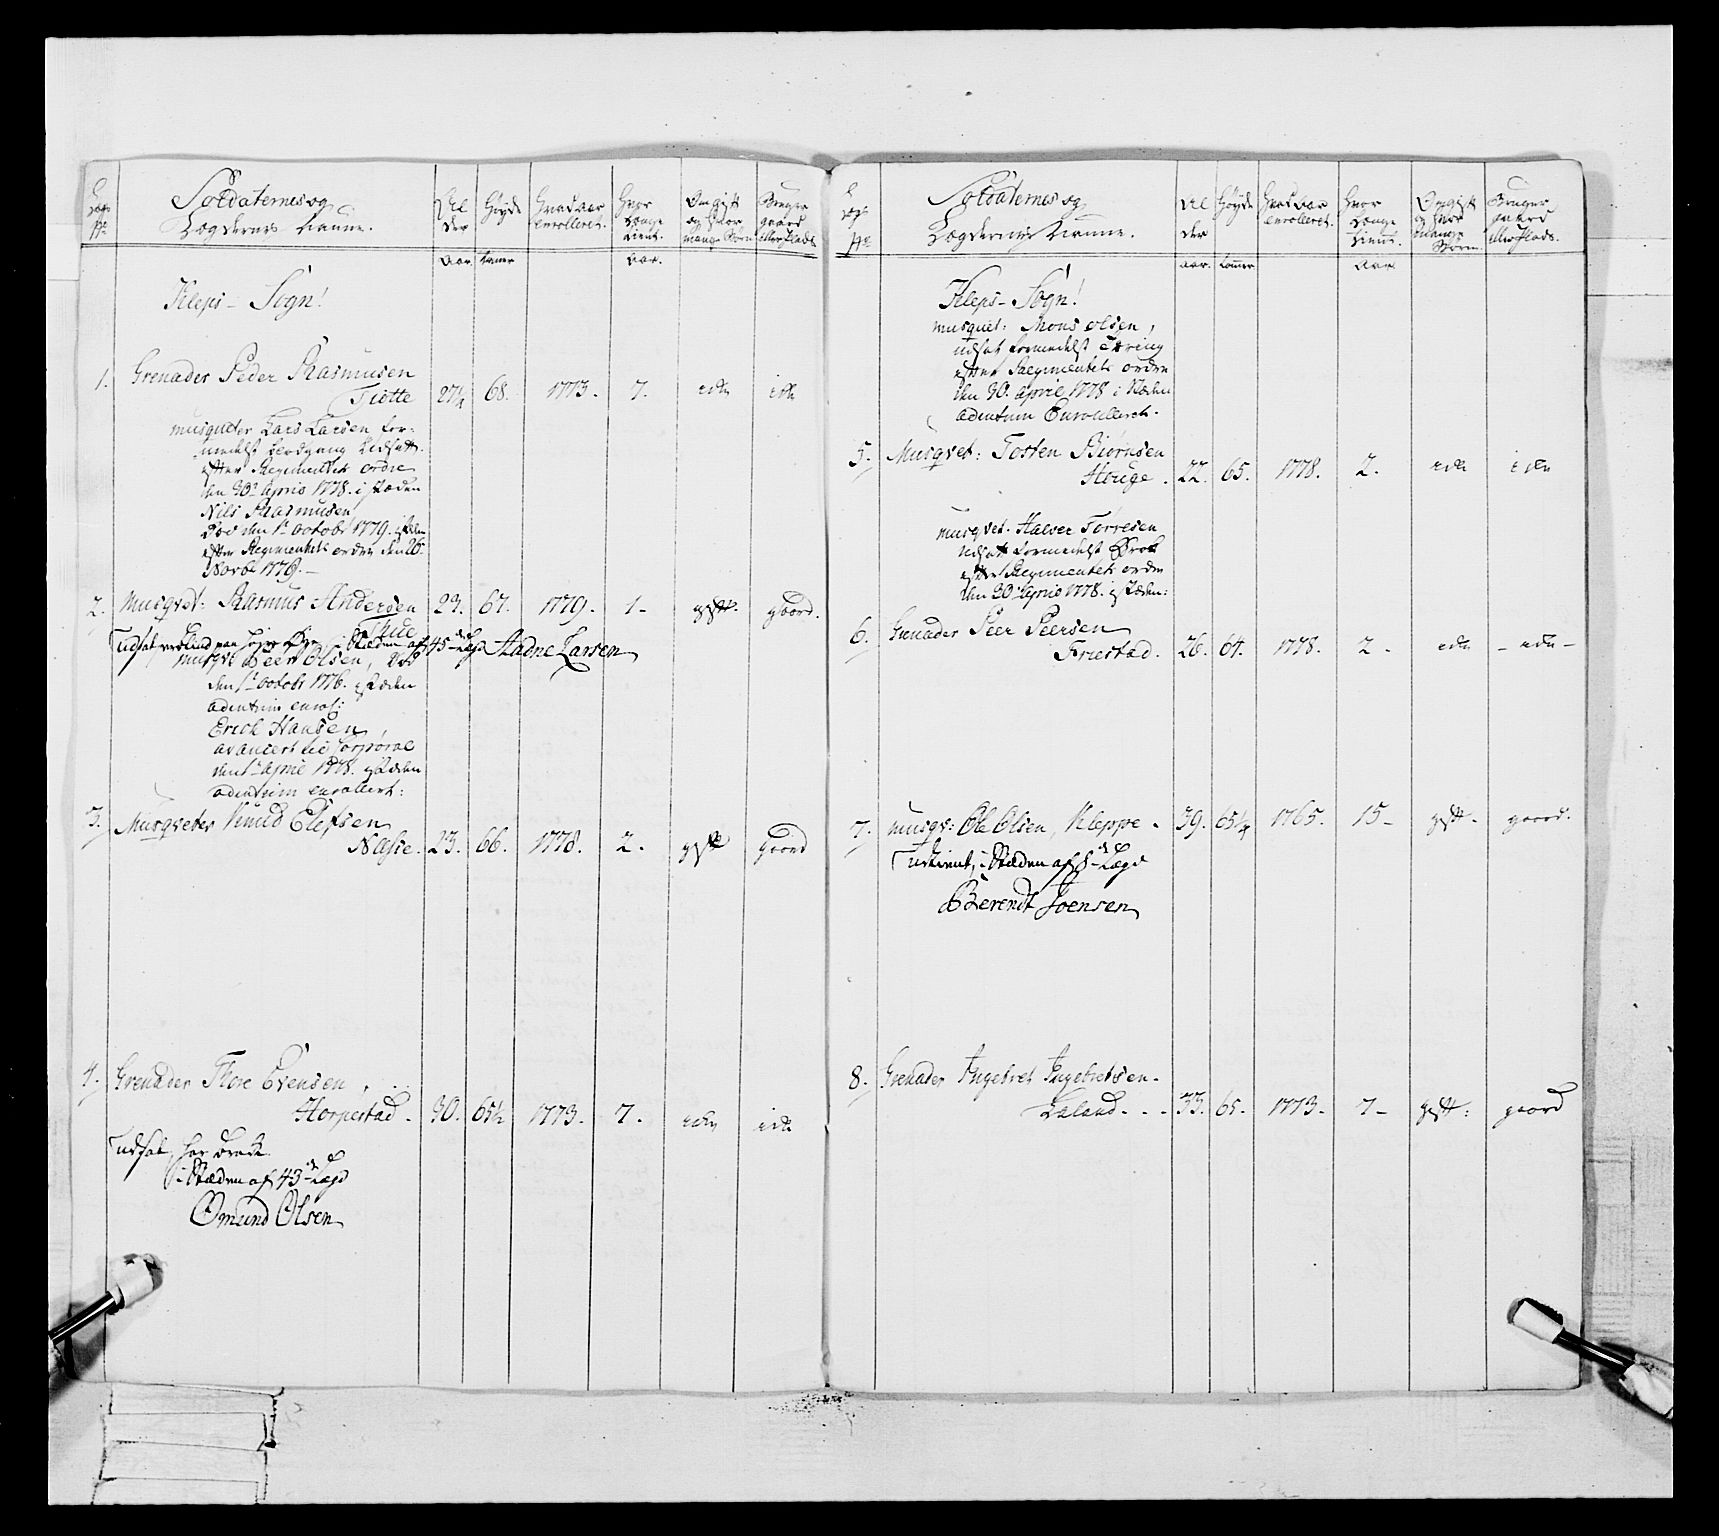 Lægs No
Soldaternes og
Lægdernes Navne.
Alder
Høyde
Hvad Aar
enrolleret.
Hvor
Længe
tient.
Om gift
og hvor
mange Børn
Bruger
gaard
eller Plads
Aar.
tomer
Aar.
Kleps - Sogn!
1. Grenader Peder Rasmusen
Tiøtte 27¼ 68. 1773. 7. icke icke
musqueter Lars Larsen for-
medelst udsatt
efter Regimentets ordre
den 30te Aprio 1778. i støden
Nils Rasmusen
død den 1te octobr 1779. i støden
efter Regimentets ordre den 26
Novbr 1779.
2. Musqvet: Rasmus Andersen 23. 67. 1779. 1 - gift. gaard.
Udsat blind paa høire Øye i Stæden af 45de Lægd Aadne Larsen
musqt Peer Olsen, død
den 1te octobr 1776. i støden
adentrim enrol:
Erich Hansen
avancert til Corporal
den 1te April 1778. i støden
adentrim enrollert:
3. Musqveter Knud Elefsen
Næsse. 23. 66. 1778. 2. gift gaard
4. Grenader Thore Evensen,
Horpestad. 30. 65½ 1773. 7. icke icke
Udsat, har brok
i Stæden af 43de Lægd
Omund Olsen
Læg
No
Soldaternes og
Lægdernes Navne.
Alder
Høyde
Hvad Aar
enrolleret.
Hvor
Længe
tient.
Om gift
og hvor
mange
Børn
Bruger
gaard
eller Plads.
aar. tomer Aar.
Kleps - Sogn!
musquet: Mons olsen,
udsat formedelst
efter Regimentets ordre
den 30. april 1778 i støden
adentrum Enrolleret.
5. Musqvet: Tosten Biørnsen
Houge. 22. 65. 1778. 2. icke icke
musqvet. Halvor Torresen
udsatt formedelst Brok
efter Regimentets ordre
den 30te Aprio 1778. i støden:
6. Grenader Peer Peersen
Friestad. 26. 64. 1778. 2 - icke - icke -
7. musqv: Ole Olsen, Kleppe. 39. 65¼ 1765. 15 - gift. gaard.
Udtient, i Stæden af 8de Lægd
Berendt Joensen
8. Grenader Ingebret Ingebretsen.
Laland. - - 33. 65. 1773. 7 - gift: gaard